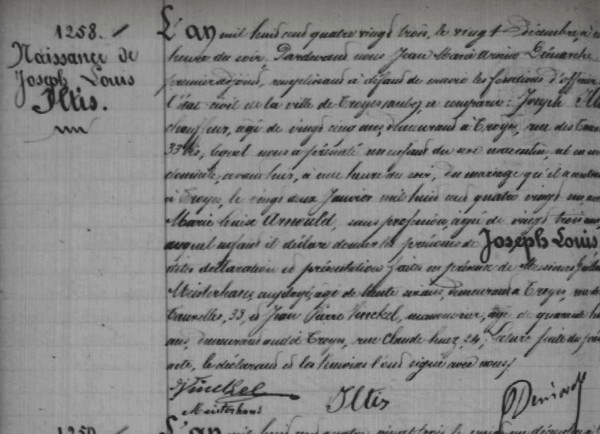 1258.
Naissance de
Joseph Louis
Iltis.
L'an mil huit cent quatre vingt trois, le vingt décembre, à
heure du soir. Pardevant nous Jean Marie
premier adjoint, remplissant à défaut de maire les fonctions d'officier
l'état civil de la ville de Troyes a comparu: Joseph
chauffeur, âgé de vingt cinq ans, demeurant à Troyes, rue des
33 bis, lequel nous a présenté un enfant du sexe masculin, né en
domicile, avant hier, à une heure du soir, du mariage qu'il a
à Troyes, le vingt deux Janvier mil huit cent quatre vingt un, avec
Marie Louise Arnould, sans profession, âgée de vingt trois ans,
auquel enfant il déclare donner les prénoms de Joseph Louis
dites déclaration et présentation faites en présence de Messieurs
Meisterhans, employé, âgé de trente ans, demeurant à Troyes, rue de
33, et Jean Pierre Vinckel, manouvrier, âgé de quarante
ans, demeurant aussi à Troyes, rue Claude huez, 24; Lecture faite du
acte, le déclarant et les témoins l'ont signé avec nous.
Vinckel Iltis
Meisterhans
1259. L'an mil huit cent quatre vingt trois, le vingt décembre à